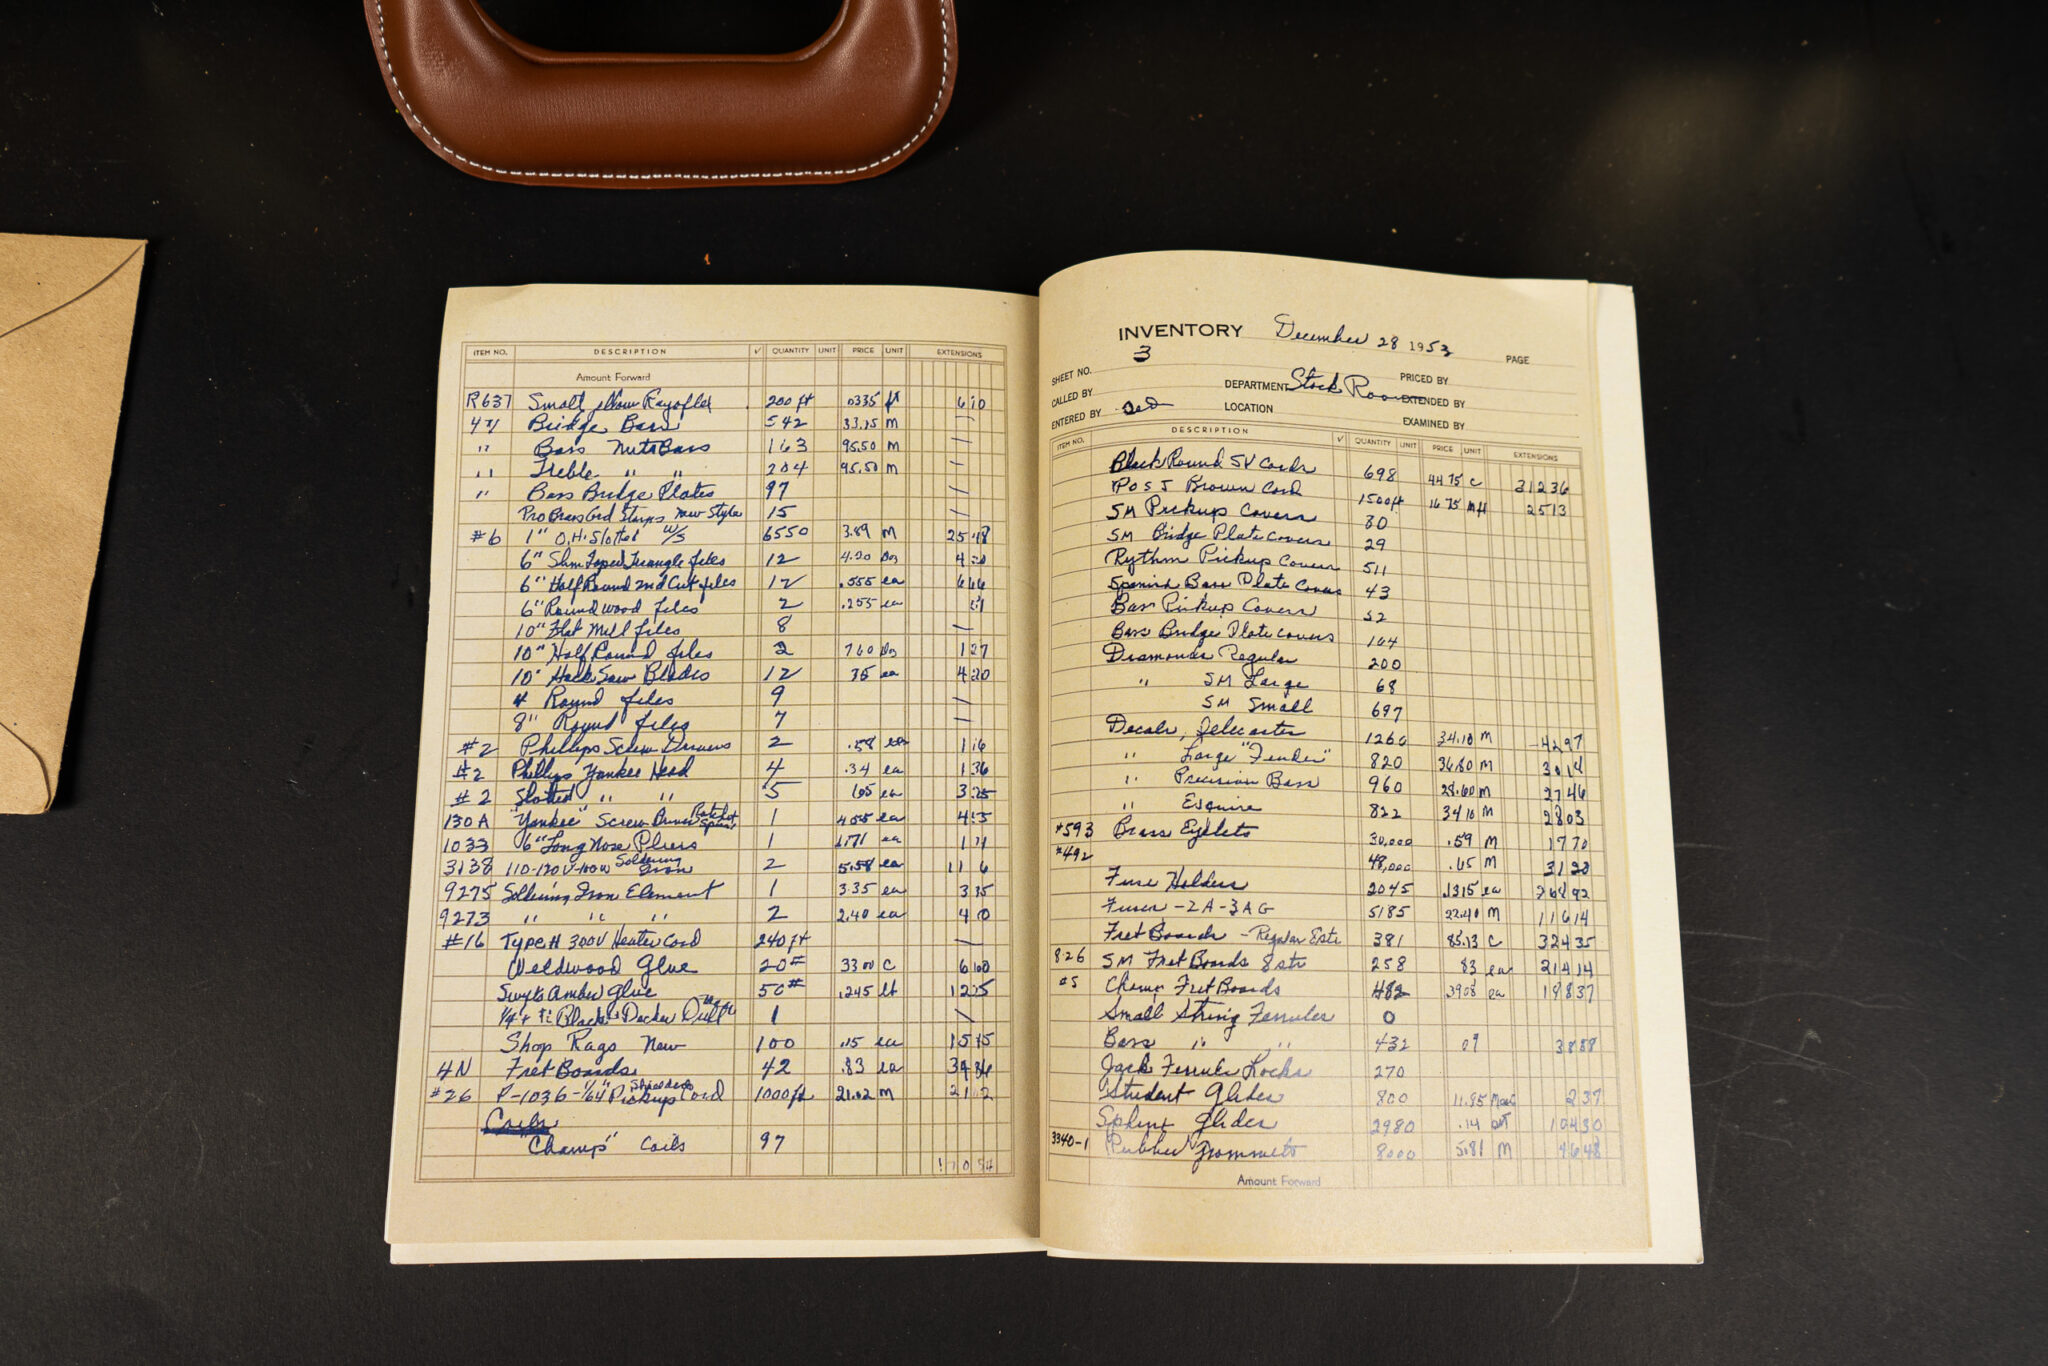 ITEM NO. DESCRIPTION √ QUANTITY UNIT PRICE UNIT EXTENSIONS
Amount Forward
R637 Small Rayoflex 200 ft .0335 ft 6 70
Bridge Bass 542 33.15 M —
" Bass Nuts Bass 163 95.50 M —
" Treble " " 204 95.50 M —
" Bass Bridge Plates 97 —
Pro Brass Grd Straps New Style 15 —
#6 1" O.H. Slotted W/S 6550 3.89 M 25 48
6" Slim Taper Triangle files 12 4.20 Doz 4 20
6" Half Round 2nd Cut files 12 .555 ea 6 66
6" Round wood files 2 .255 ea 51
10" Flat Mill files 8 —
10" Half Round files 2 7 60 Doz 1 27
10" Hack Saw Blades 12 35 ea 4 20
4 Round files 9 —
8" Round files 7 —
#2 Phillips Screw Drivers 2 .58 ea 1 16
#2 Phillips Yankee Head 4 .34 ea 1 36
#2 Slotted " " 5 .65 ea 3 25
130A "Yankee" Screw Driver 1 4.55 ea 4 55
1033 6" Long Nose Pliers 1 1.71 ea 1 71
3138 110-120V-100W Soldering Iron 2 5.58 ea 11 16
9275 Soldering Iron Element 1 3.35 ea 3 35
9273 " " " 2 2.40 ea 4 80
#16 Type H 300V Heater Cord 240 ft —
Weldwood Glue 20# 33 00 C 6 60
Amber Glue 50# .245 12 25
Black & Decker Drill 1 —
Shop Rags New 100 .15 ea 15 45
4N Fret Boards 42 .83 ea 34 86
#26 P-1036-1/64" Shielded Pickup Cord 1000 ft 21.12 M 21 12
Coils
"Champ" Coils 97
INVENTORY December 28 1953 PAGE
SHEET NO. 3 PRICED BY
CALLED BY DEPARTMENT Stock Room EXTENDED BY
ENTERED BY LOCATION EXAMINED BY
ITEM NO. DESCRIPTION √ QUANTITY UNIT PRICE UNIT EXTENSIONS
Black Round SV Cords 698 44 75 C 312 36
POSJ Brown Cord 1500 ft 16 75 M ft 25 13
SM Pickup Covers 30
SM Bridge Plate Covers 29
Rythm Pickup Covers 511
Spanish Bass Plate Covers 43
Bass Pickup Covers 52
Bass Bridge Plate Covers 104
Diamonds Regular 200
" SM Large 68
SM Small 697
Decals, Telecaster 1260 34.10 M 42 97
" Large "Fender" 820 36.80 M 30 18
" Precision Bass 960 28.60 M 27 46
" Esquire 822 34 10 M 28 03
#593 Brass Eyelets 30,000 .59 M 17 70
#492 48,000 .65 M 31 20
Fuse Holders 2045 .1315 ea 268 92
Fuses - 2A - 3AG 5185 22.40 M 116 14
Fret Boards - Regular 381 85.13 C 324 35
826 SM Fret Boards 8 str 258 83 ea 214 14
05 Champ Fret Boards 482 .3908 ea 188 37
Small String Ferrules 0
Bass " " 432 09 38 88
Jack Ferrule Locks 270
Student Glides 800 11.85 2 37
Sphinx Glides 2980 .14 104 30
3340-1 Rubber Grommets 8000 5.81 M 46 48
Amount Forward